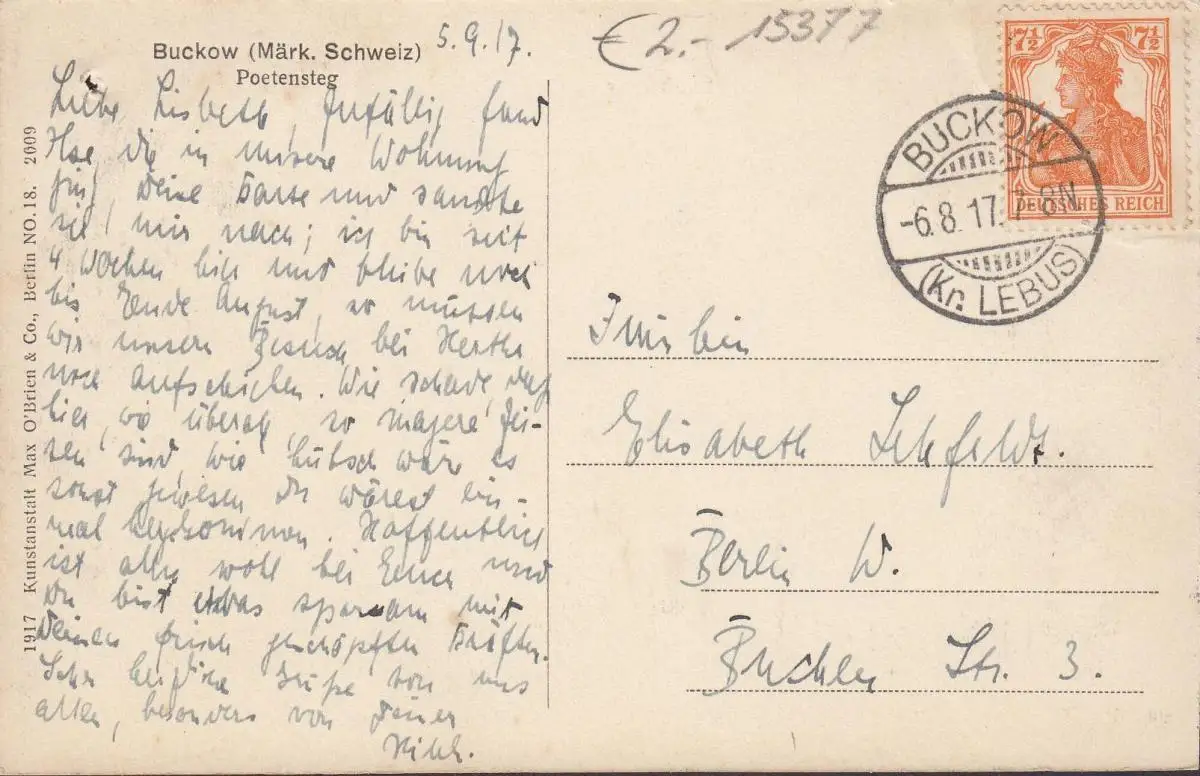 Buckow (Märk. Schweiz)
Poetensteg
5.9.17.
Liebe Lisbeth, Zufällig fand
Ilse, die in unsere Wohnung
ging, Deine Karte und sandte
sie mir nach; ich bin seit
4 Wochen hier und bleibe noch
bis Ende August, so müssen
wir unseren Besuch bei Hertha
noch aufschieben. Wie schade, daß
hier, wie überall, so magere Zei-
ten sind, wie hübsch wäre es
sonst gewesen Du wärest ein-
mal hergekommen. Hoffentlich
ist alles wohl bei Euch und
Du bist etwas sparsam mit
Deinen frisch geschöpften Kräften.
Sehr herzliche Grüße von uns
allen, besonders von Deiner
1917 Kunstanstalt Max O'Brien & Co., Berlin NO.18. 2609
€ 2.- 15377
7½ 7½
DEUTSCHES REICH
BUCKOW
-6.8.17. 7-8N.
(Kr. LEBUS)
Elisabeth
Berlin W.
Str. 3.